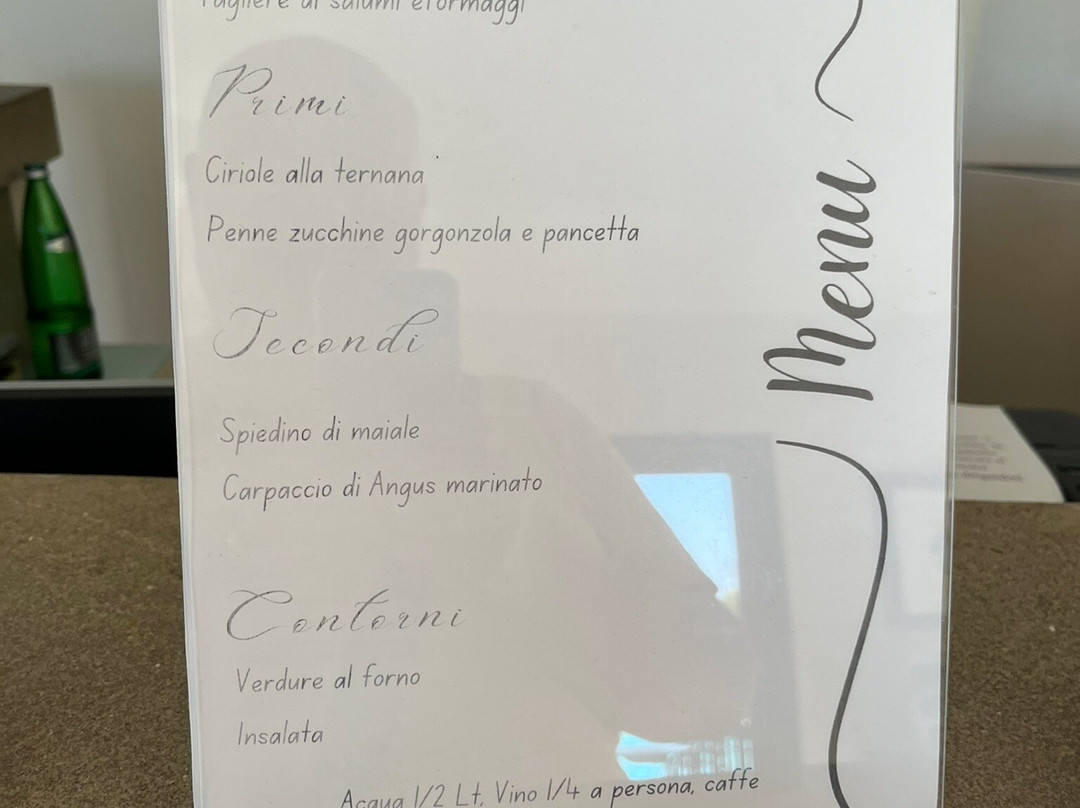 Tagliere di salumi eformaggi
Primi
Ciriole alla ternana
Penne zucchine gorgonzola e pancetta
Secondi
Spiedino di maiale
Carpaccio di Angus marinato
Contorni
Verdure al forno
Insalata
Acqua 1/2 Lt, Vino 1/4 a persona, caffe
Menu